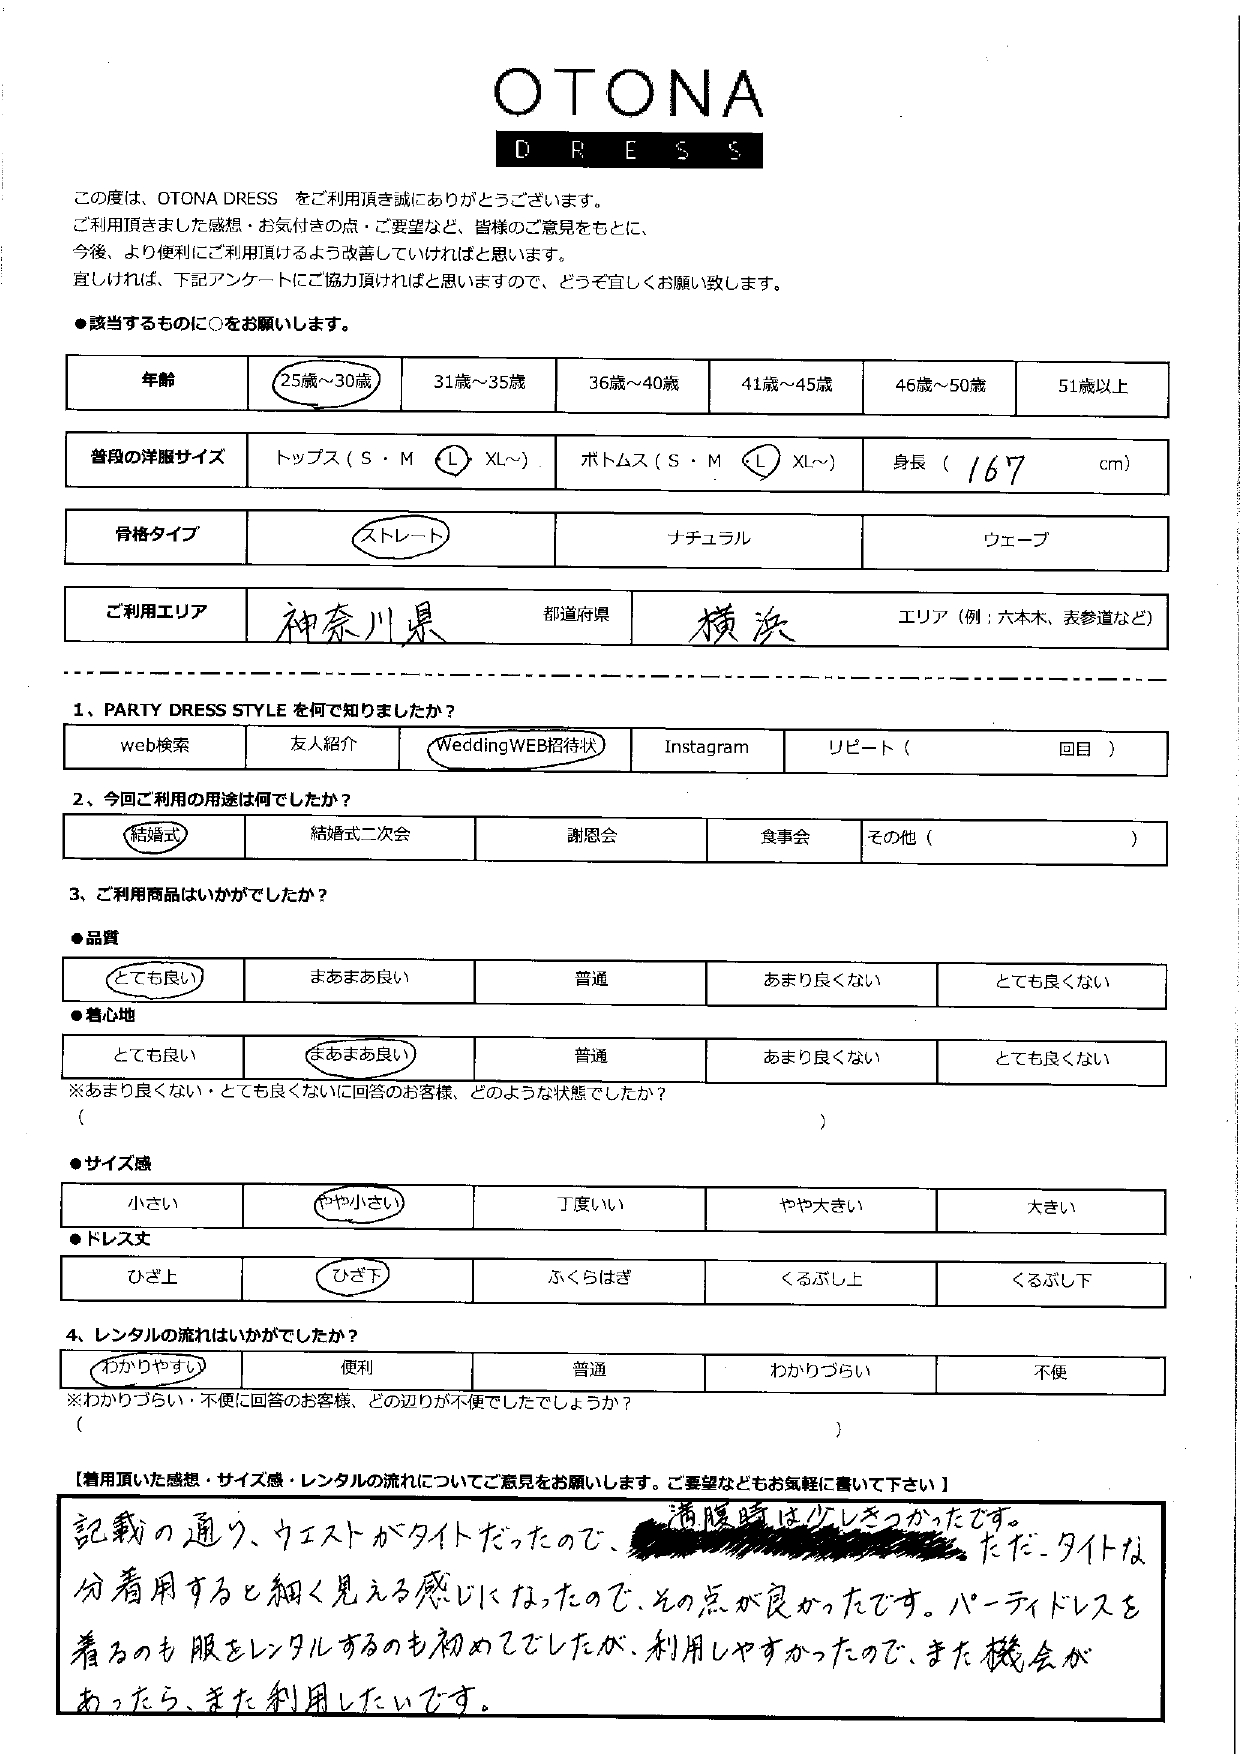 OTONA
DRESS
この度は、OTONA DRESS　をご利用頂き誠にありがとうございます。
ご利用頂きました感想・お気付きの点・ご要望など、皆様のご意見をもとに、
今後、より便利にご利用頂けるよう改善していければと思います。
宜しければ、下記アンケートにご協力頂ければと思いますので、どうぞ宜しくお願い致します。
●該当するものに○をお願いします。
年齢 25歳～30歳 31歳～35歳 36歳～40歳 41歳～45歳 46歳～50歳 51歳以上
普段の洋服サイズ トップス ( S ・ M ・ L ・ XL～) ボトムス ( S ・ M ・ L ・ XL～) 身長 ( 167 cm)
骨格タイプ ストレート ナチュラル ウェーブ
ご利用エリア 神奈川県 都道府県 横浜 エリア（例：六本木、表参道など）
1、PARTY DRESS STYLE を何で知りましたか？
web検索 友人紹介 WeddingWEB招待状 Instagram リピート ( 回目 )
2、今回ご利用の用途は何でしたか？
結婚式 結婚式二次会 謝恩会 食事会 その他 ( )
3、ご利用商品はいかがでしたか？
●品質
とても良い まあまあ良い 普通 あまり良くない とても良くない
●着心地
とても良い まあまあ良い 普通 あまり良くない とても良くない
※あまり良くない・とても良くないに回答のお客様、どのような状態でしたか？
( )
●サイズ感
小さい やや小さい 丁度いい やや大きい 大きい
●ドレス丈
ひざ上 ひざ下 ふくらはぎ くるぶし上 くるぶし下
4、レンタルの流れはいかがでしたか？
わかりやすい 便利 普通 わかりづらい 不便
※わかりづらい・不便に回答のお客様、どの辺りが不便でしたでしょうか？
( )
【着用頂いた感想・サイズ感・レンタルの流れについてご意見をお願いします。ご要望などもお気軽に書いて下さい】
記載の通り、ウエストがタイトだったので、満腹時は少しきつかったです。ただ、タイトな
分着用すると細く見える感じになったので、その点が良かったです。パーティドレスを
着るのも服をレンタルするのも初めてでしたが、利用しやすかったので、また機会が
あったら、また利用したいです。